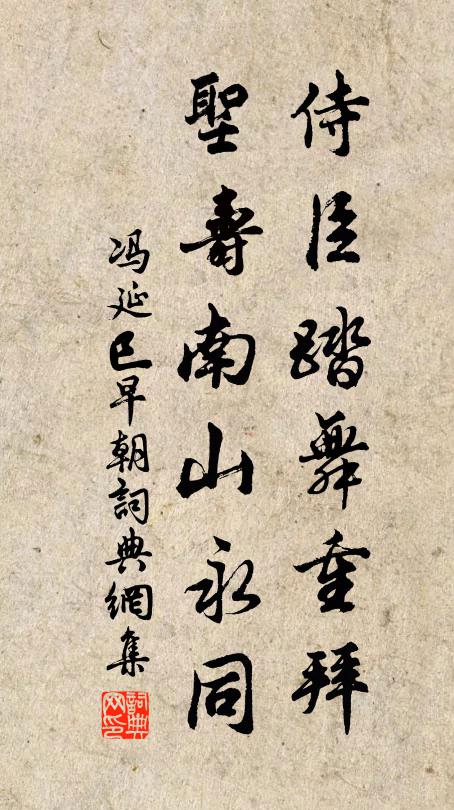 侍臣踏舞重拜
聖壽南山永同
冯延巳早朝詞典網集
詞典网印